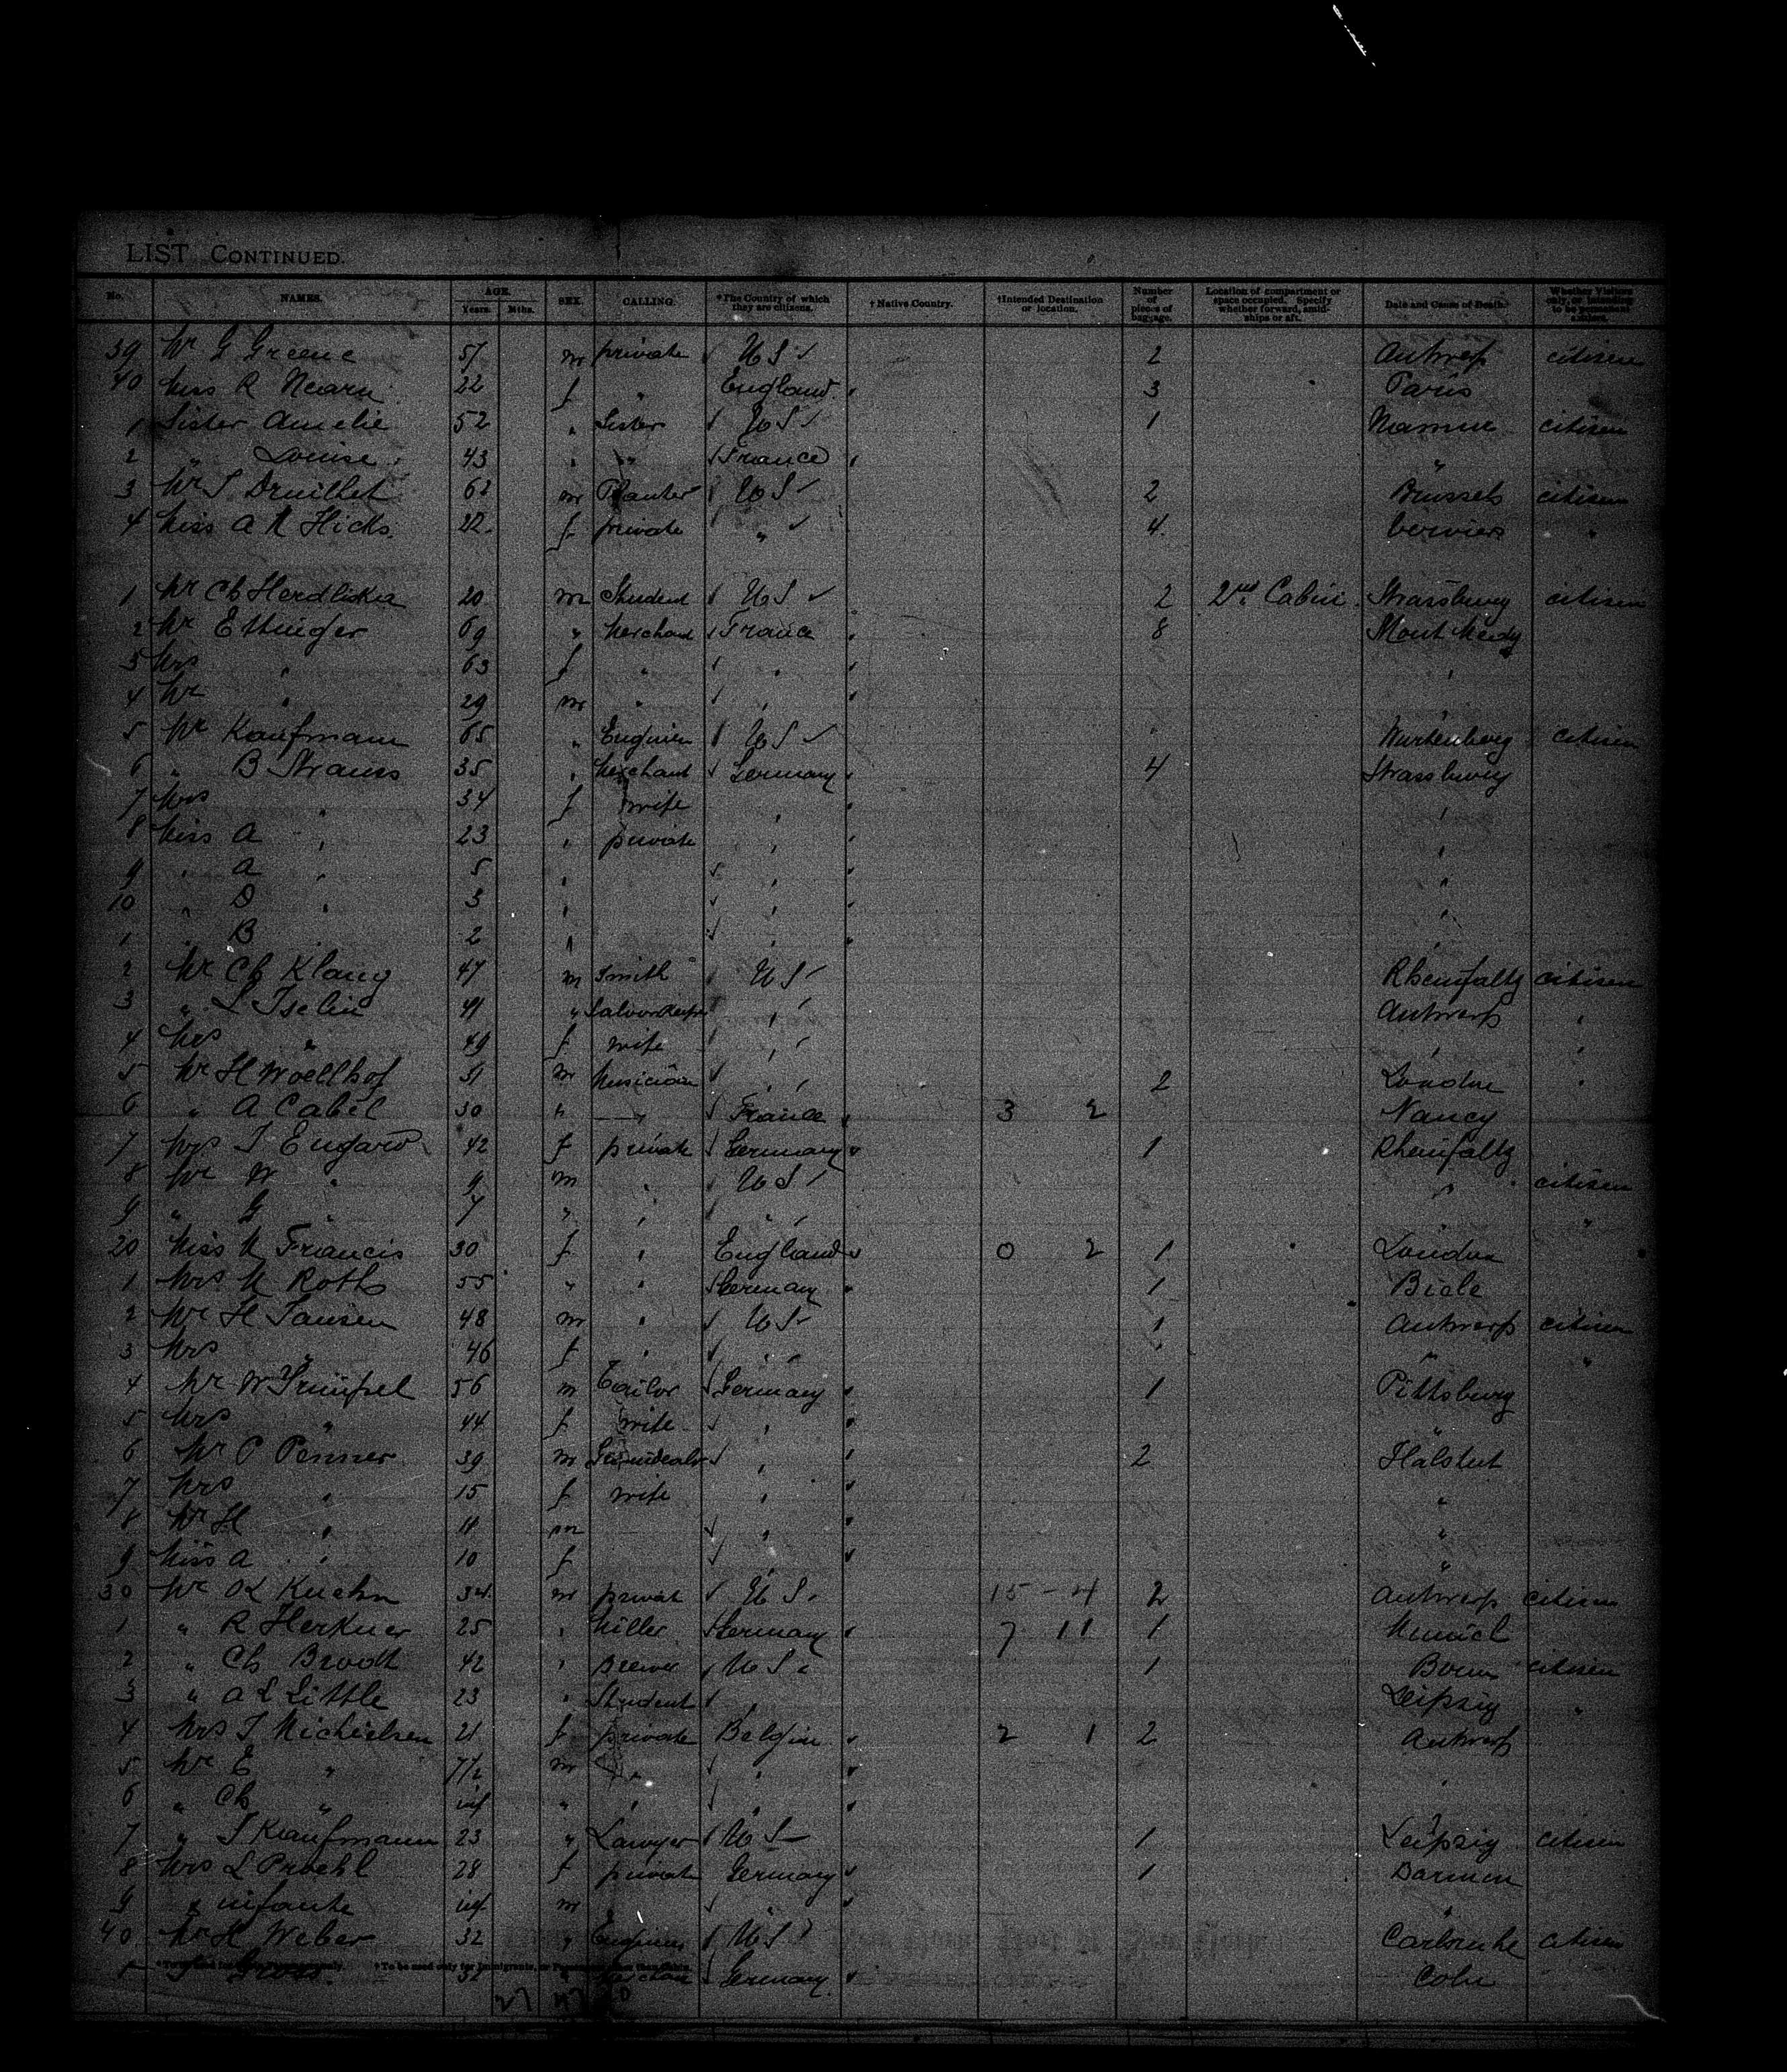 LIST CONTINUED.
No. NAMES. AGE. Years. Mths. SEX. CALLING. *The Country of which they are citizens. †Native Country. †Intended Destination or location. Number of pieces of baggage. Location of compartment or space occupied. Specify whether forward, amidships or aft. Date and Cause of Death. Whether Visitors only, or intending to be permanent settlers.
39 Mr G Greene 57 m private U S 2 Antwerp citizen
40 Miss R Nearn 22 f " England 3 Paris
1 Sister Amelie 52 " Sister U S 1 Namur citizen
2 " Louise 43 " " France "
3 Mr S Druilhet 62 m Planter U S 2 Brussels citizen
4 Miss A R Hicks 22 f private " 4 Verviers "
1 Mr Ch Herdliska 20 m Student U S 2 2nd Cabin Strassburg citizen
2 Mr Ettinger 69 " Merchant France 8 Mont Medy
3 Mrs " 63 f " " "
4 Mr " 29 m " " "
5 Mr Kaufmann 65 " Engineer U S " Wurtenberg citizen
6 " B Strauss 35 " Merchant Germany 4 Strassburg
7 Mrs " 34 f wife " "
8 Miss A " 23 " private " "
9 " A " 5 " " "
10 " D " 3 " " "
1 " B 2 " " "
2 Mr Ch Klang 47 m Smith U S Rheinfaltz citizen
3 " L Iselin 41 " Saloonkeeper " Antwerp "
4 Mrs " 49 f wife " " "
5 Mr H Woellhof 31 m Musician " 2 London "
6 " A Cabel 30 " — France 3 2 Nancy
7 Mrs T Engard 42 f private Germany 1 Rheinfaltz
8 Mr W " 9 m " U S " citizen
9 " G " 7 " " " "
20 Miss M Francis 30 f " England 0 2 1 London
1 Mrs M Roth 55 " " Germany 1 Biele
2 Mr H Jansen 48 m " U S 1 Antwerp citizen
3 Mrs " 46 f " " " "
4 Mr W Trumpel 56 m Tailor Germany 1 Pittsburg
5 Mrs " 44 f wife " "
6 Mr P Penner 39 m " 2 Halstut
7 Mrs " 15 f wife " "
8 Mr H " 11 m " "
9 Miss A " 10 f "
30 Mr O L Kuehn 34 m privat U S 15 - 4 2 Antwerp citizen
1 " R Herkner 25 " Miller Germany 7 11 1 Munich
2 " Ch Brodt 42 " Brewer U S 1 Bonn citizen
3 " A L Little 23 " Student " Leipzig "
4 Mrs T Michielsen 21 f private Belgium 2 1 2 Antwerp
5 Mr E " 7/12 m " " "
6 " Ch " inf " " "
7 " J Kaufmann 23 " Lawyer U S 1 Leipzig citizen
8 Mrs L Proehl 28 f private Germany 1 Barmen
9 " infante inf m "
40 Mr H Weber 32 " Engineer U S Carlsruhe citizen
1 " J Gross 32 " Merchant Germany Coln